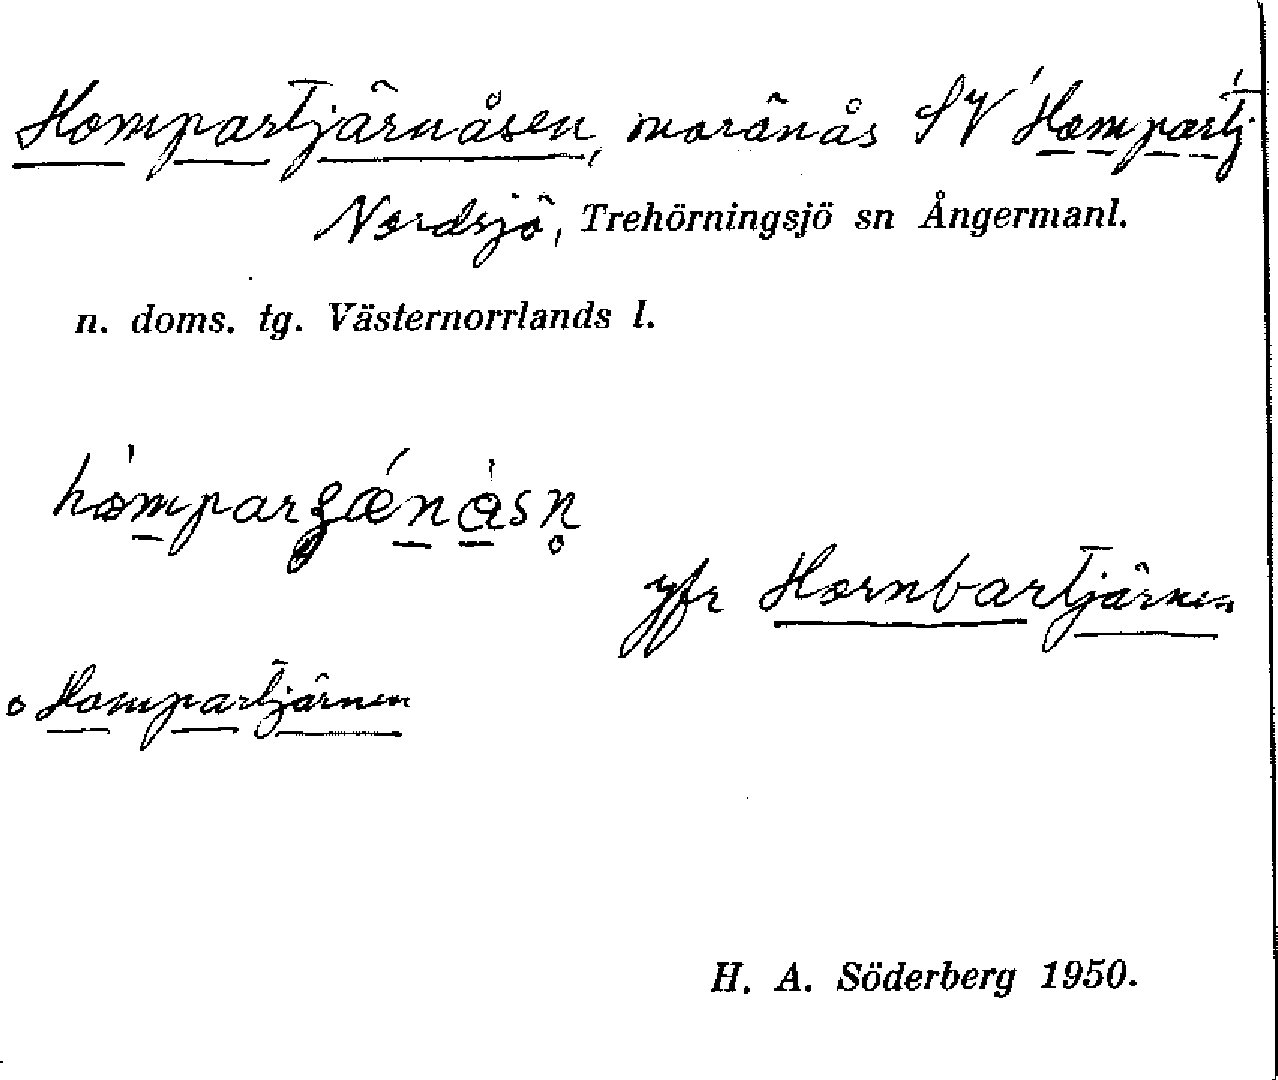 Hompartjärnåsen, moränås SV Hompartj
Nordsjö, Trehörningsjö sn Ångermanl.
n. doms. tg. Västernorrlands l.
jfr Hornbartjärnen
o Hompartjärnen
H. A. Söderberg 1950.